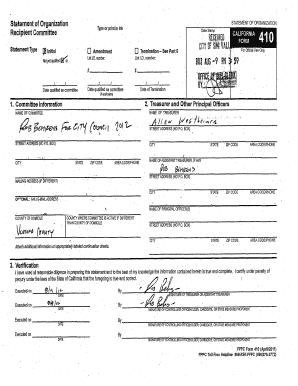 Statement of Organization
Recipient Committee
Type or print in ink
STATEMENT OF ORGANIZATION
Date Stamp
RECEIVED
CITY OF SIMI VALLEY
CALIFORNIA FORM 410
For Official Use Only
Statement Type
Initial
Amendment
Termination – See Part 5
Not yet qualified
or
List I.D. number:
List I.D. number:
#
#
Date qualified as committee
Date qualified as committee
(If applicable)
Date of Termination
1. Committee Information
2. Treasurer and Other Principal Officers
NAME OF COMMITTEE
NAME OF TREASURER
City Council 2012
STREET ADDRESS (NO P.O. BOX)
STREET ADDRESS (NO P.O. BOX)
CITY STATE ZIP CODE AREA CODE/PHONE
CITY STATE ZIP CODE AREA CODE/PHONE
NAME OF ASSISTANT TREASURER, IF ANY
MAILING ADDRESS (IF DIFFERENT)
STREET ADDRESS (NO P.O. BOX)
CITY STATE ZIP CODE AREA CODE/PHONE
OPTIONAL: FAX / E-MAIL ADDRESS
NAME OF PRINCIPAL OFFICER(S)
COUNTY OF DOMICILE
COUNTY WHERE COMMITTEE IS ACTIVE IF DIFFERENT THAN COUNTY OF DOMICILE
Ventura County
STREET ADDRESS (NO P.O. BOX)
CITY STATE ZIP CODE AREA CODE/PHONE
Attach additional information on appropriately labeled continuation sheets.
3. Verification
I have used all reasonable diligence in preparing this statement and to the best of my knowledge the information contained herein is true and complete. I certify under penalty of
perjury under the laws of the State of California that the foregoing is true and correct.
Executed on
DATE
By
SIGNATURE OF TREASURER OR ASSISTANT TREASURER
Executed on
DATE
By
SIGNATURE OF CONTROLLING OFFICEHOLDER, CANDIDATE, OR STATE MEASURE PROPONENT
Executed on
DATE
By
SIGNATURE OF CONTROLLING OFFICEHOLDER, CANDIDATE, OR STATE MEASURE PROPONENT
Executed on
DATE
By
SIGNATURE OF CONTROLLING OFFICEHOLDER, CANDIDATE, OR STATE MEASURE PROPONENT
FPPC Form 410 (April/2011)
FPPC Toll-Free Helpline: 866/ASK-FPPC (866/275-3772)